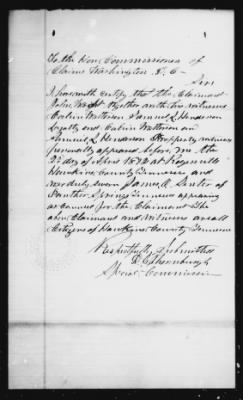 To the Hon. Commissioner of
Claims Washington D. C.
Sir
I herewith certify that the Claimant
John West together with the witnesses
Samuel L. Henderson
Loyalty and
Samuel L. Henderson property witness
personally appeared before me the
2d day of April 1872 at Rogersville
Hawkins County Tennessee and
were duly sworn James A.
Panther Springs Tennessee appearing
as Counsel for the Claimant The
above Claimant and witness are all
Citizens of Hawkins County Tennessee
Respectfully Submitted
Thornburgh
Special Commissioner